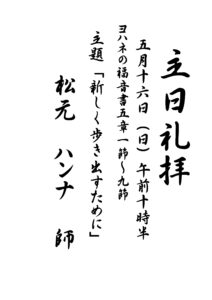 主日礼拝
五月十六日（日）午前十時半
ヨハネの福音書五章一節〜九節
主題「新しく歩き出すために」
松元　ハンナ　師